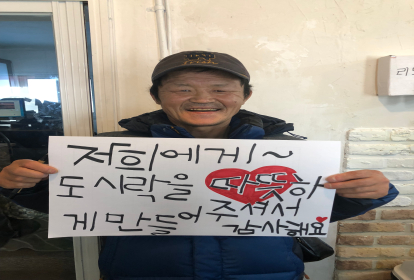 저희에게!~
도시락을 따뜻하
게 만들어 주셔서
감사해요